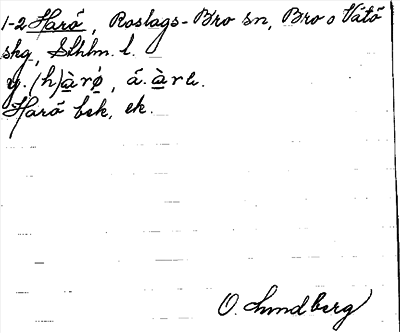 1-2 Harö, Roslags-Bro sn, Bro o Vätö
skg, Sthlm. l.
y. (h)àrö̀, á. àre.
Harö bsk, ek.
O. Lundberg